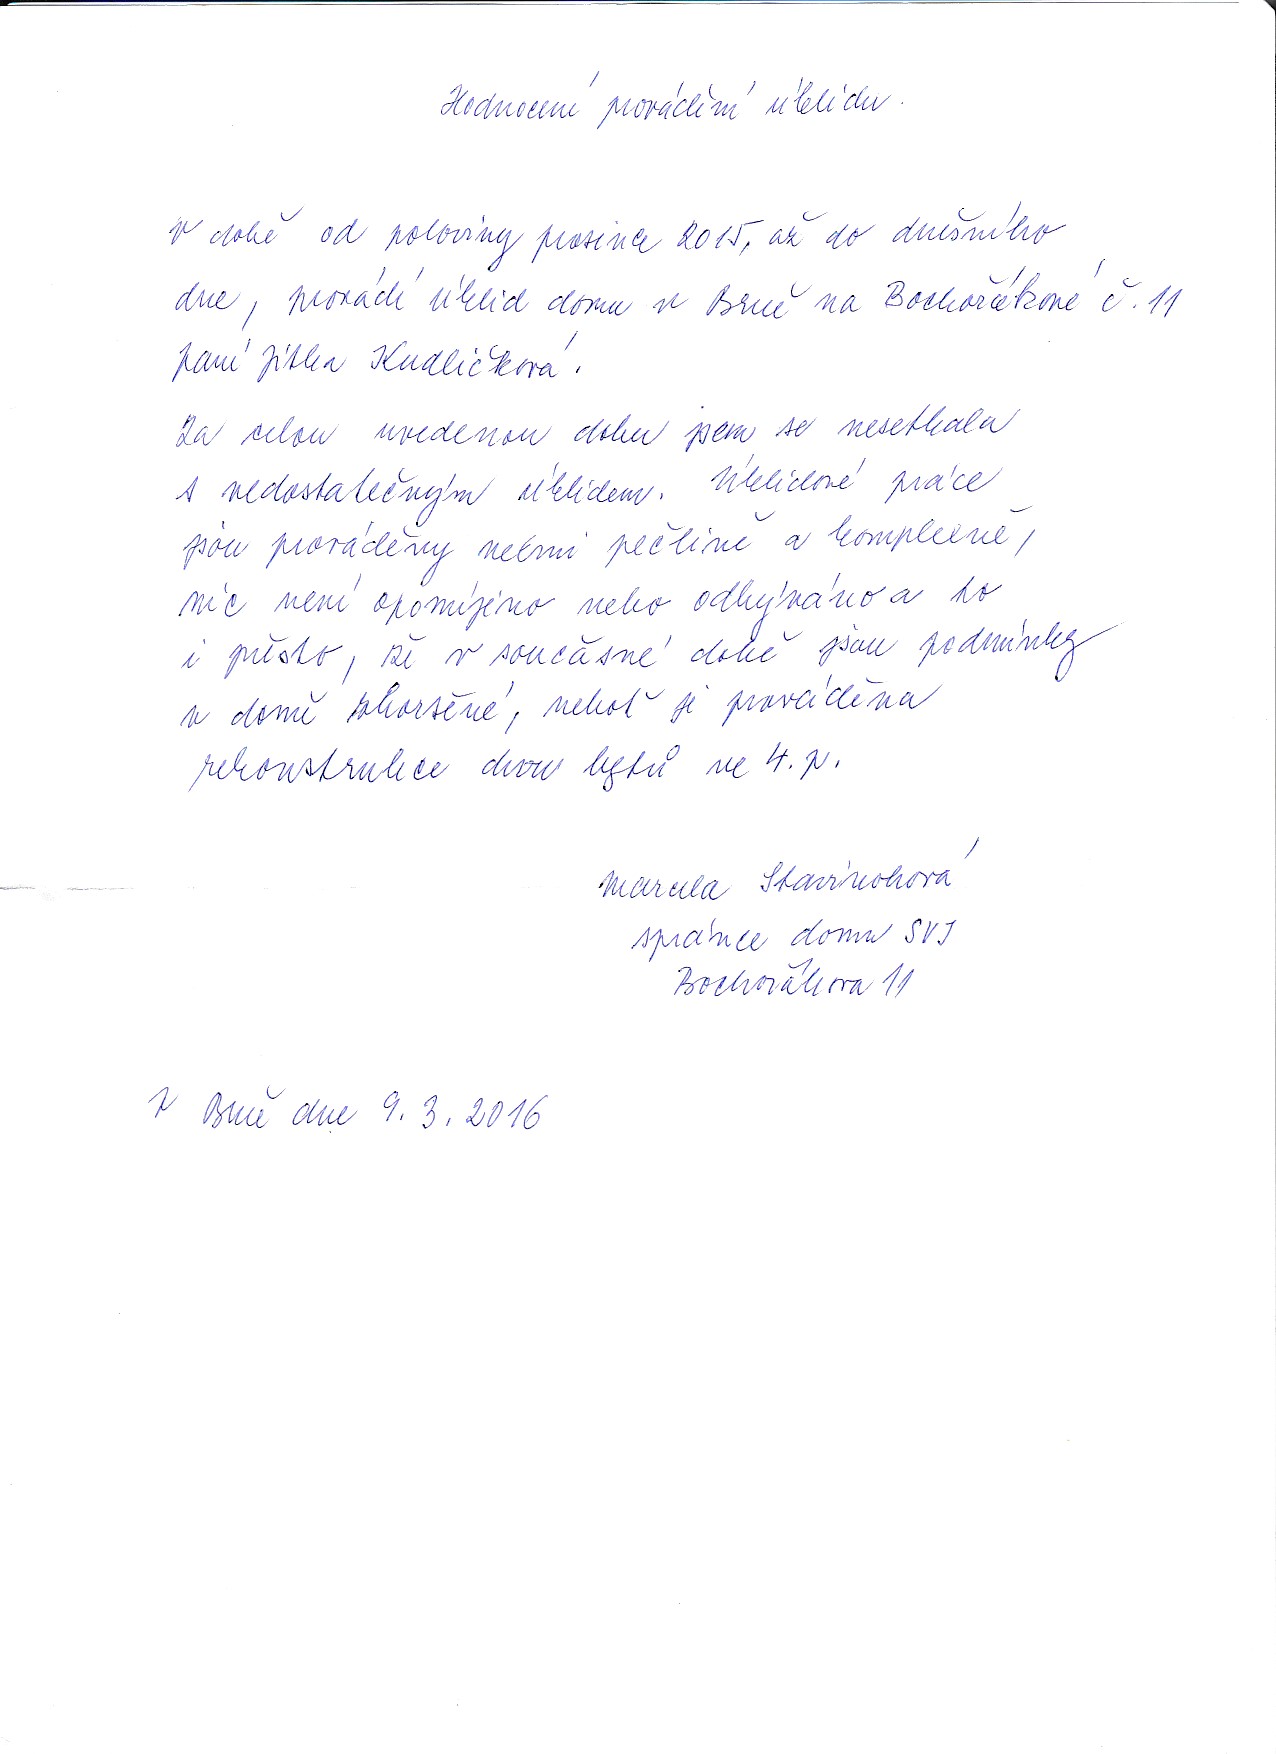 Hodnocení provádění úklidu.
V době od poloviny prosince 2015, až do dnešního
dne, provádí úklid domu v Brně na Bochořákové č. 11
paní Jitka Kudličková.
Za celou uvedenou dobu jsem se nesetkala
s nedostatečným úklidem. Úklidové práce
jsou prováděny velmi pečlivě a komplexně,
nic není opomíjeno nebo odbýváno a to
i přesto, že v současné době jsou podmínky
v domě zhoršené, neboť je prováděna
rekonstrukce dvou bytů ve 4. p.
Marcela Stavinohová
správce domu SVJ
Bochořákova 11
V Brně dne 9. 3. 2016